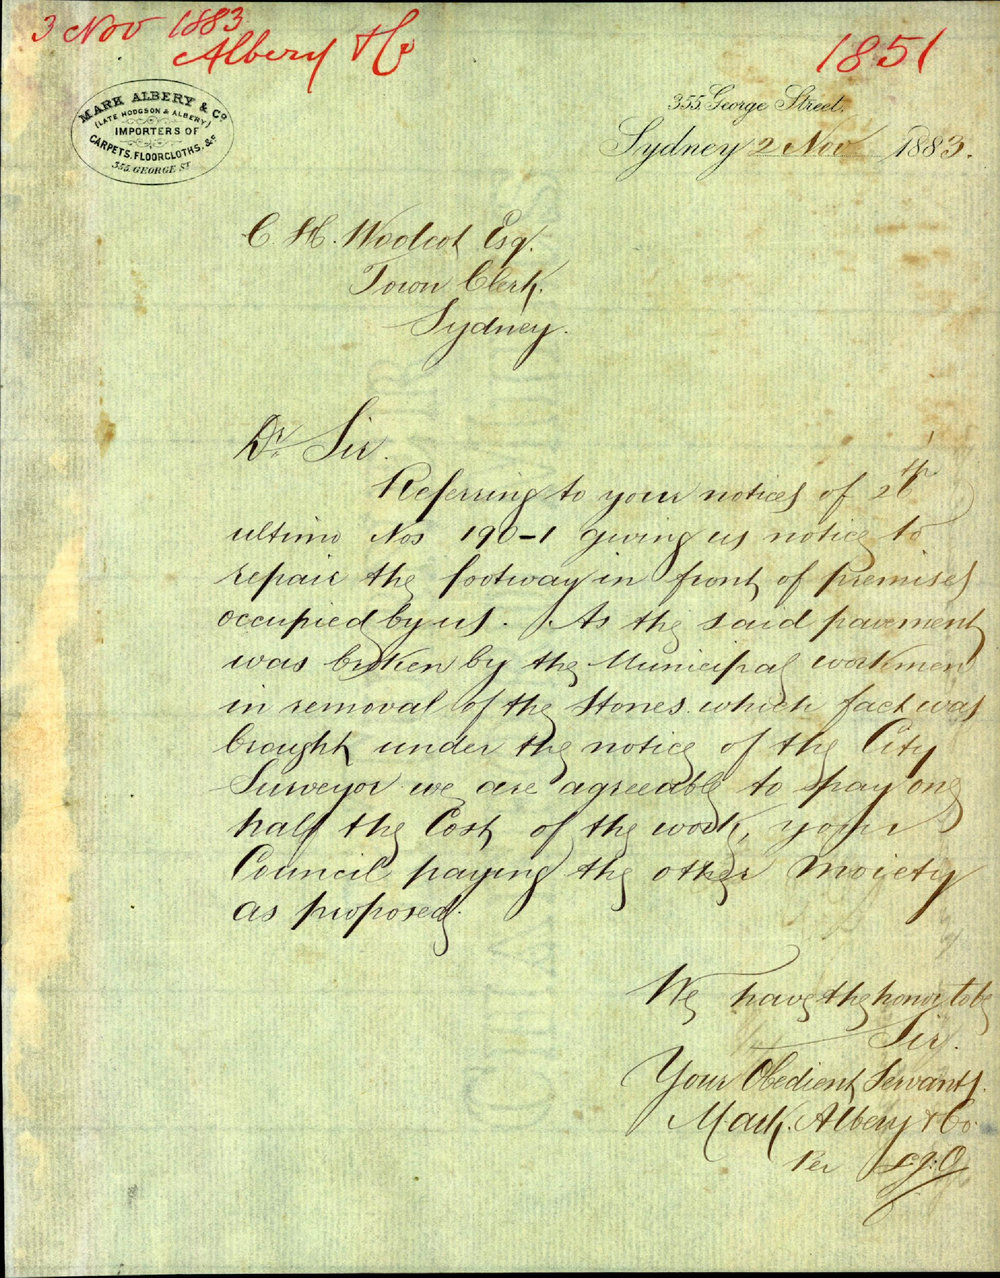 3 Nov 1883
Albery & Co
1851
MARK ALBERY & Co
(LATE HODGSON & ALBERY)
IMPORTERS OF
CARPETS, FLOORCLOTHS, &c
355. GEORGE ST
355. George Street,
Sydney 2 Nov 1883.
C. H. Woolcot Esq.
Town Clerk.
Sydney.
Dr Sir.
Referring to your notices of 26th
ultimo Nos 190-1 giving us notice to
repair the footway in front of premises
occupied by us. As the said pavement
was broken by the Municipal workmen
in removal of the stones. which fact was
brought under the notice of the City
Surveyor we are agreeable to pay one
half the Cost of the work, your
Council paying the other moiety
as proposed.
We have the honor to be
Sir.
Your Obedient Servants.
Mark. Albery & Co.
Per